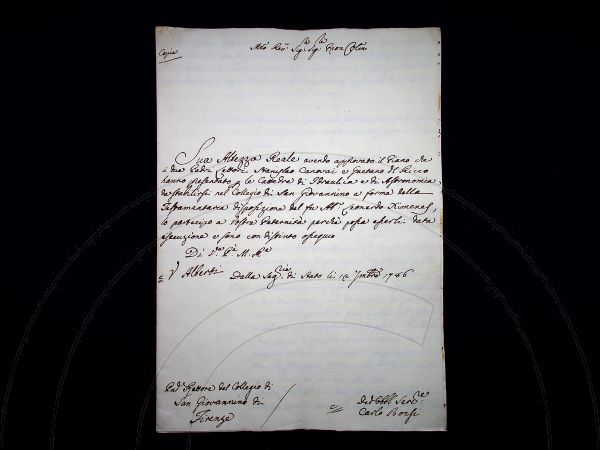 Copia
Mto Revdo Sigr Sigr Pron Colmo
Sua Altezza Reale avendo approvato il Piano che
i due Padri Lettori Stanislao Canovai e Gaetano del Ricco
hanno presentato p le Cattedre di Idraulica e di Astronomia
da stabilirsi nel Collegio di San Giovannino a forma della
Testamentaria disposizione del fu Abe Leonardo Ximenes,
lo partecipo a Vostra Paternità perchè possa esserli data
esecuzione e sono con distinto ossequio
Di V. Pà M. Rda
V Alberti
Dalla Segria di Stato li 12 1786
Pad Rettore del Collegio di
San Giovannino di
Firenze
Devmo Obblmo Serre
Carlo Bonsi